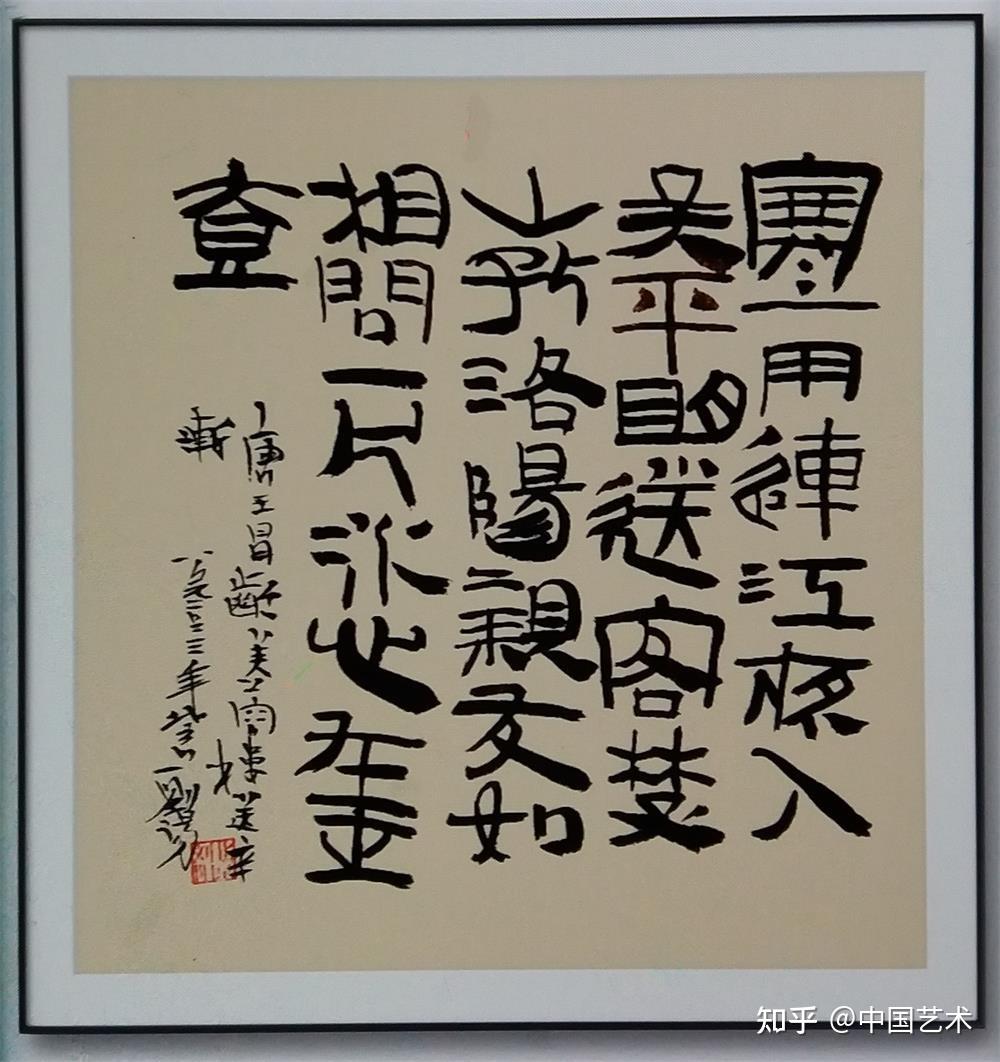 寒雨連江夜入
吳平明送客楚
山孤洛陽親友如
相問一片冰心在玉
壺
唐王昌齡芙蓉樓送辛
漸
知乎 @中国艺术